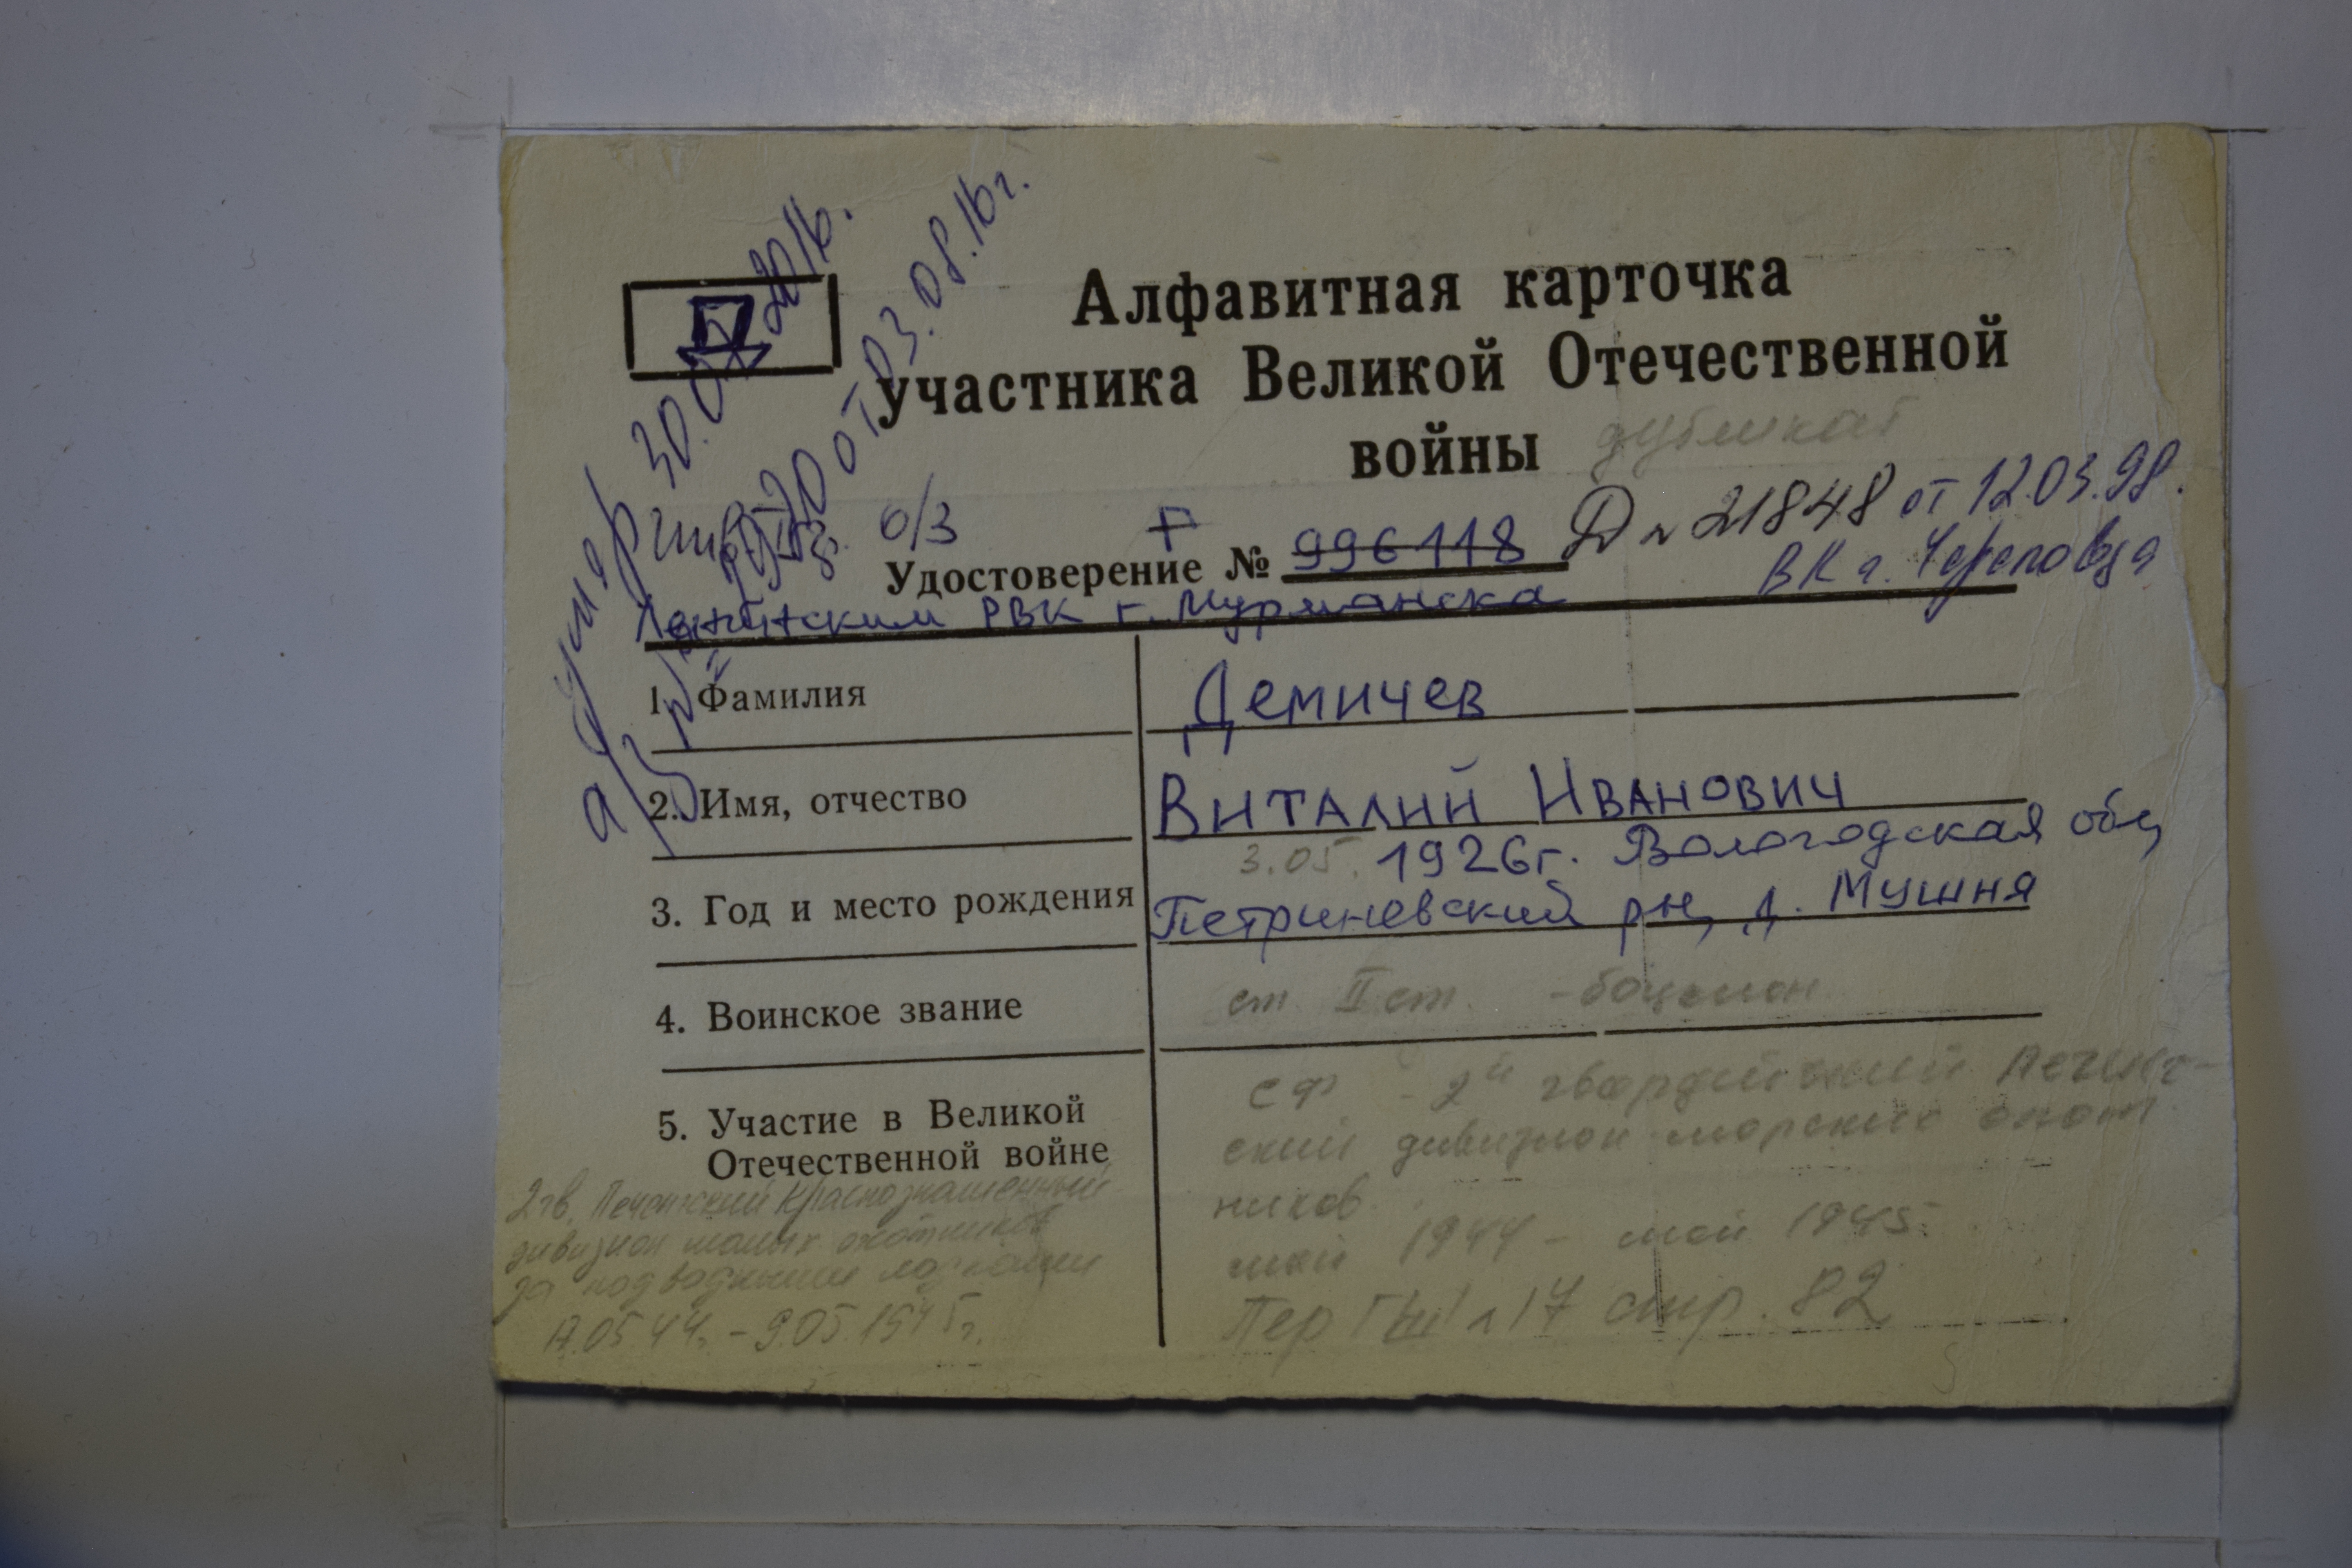 Д
Алфавитная карточка
участника Великой Отечественной
войны дубликат
умер 30. 2016.
от 03.08.16г.
о/з Г
Удостоверение № 996118 Д № 21848 от 12.03.98.
Ленинским РВК г. Мурманска ВК г. Череповца
1. Фамилия Демичев
2. Имя, отчество Виталий Иванович
3.05. 1926г. Вологодская обл
3. Год и место рождения Петриневский рн, д. Мушня
4. Воинское звание ст II ст. - боцман
5. Участие в Великой
Отечественной войне
СФ - 2й гвардейский Печенг-
ский дивизион морских охот
ников
май 1944 - май 1945.
стр. 82
2 гв. Печенгский Краснознаменный
дивизион малых охотников
за подводными лодками
17.05.44г. - 9.05.1945г.